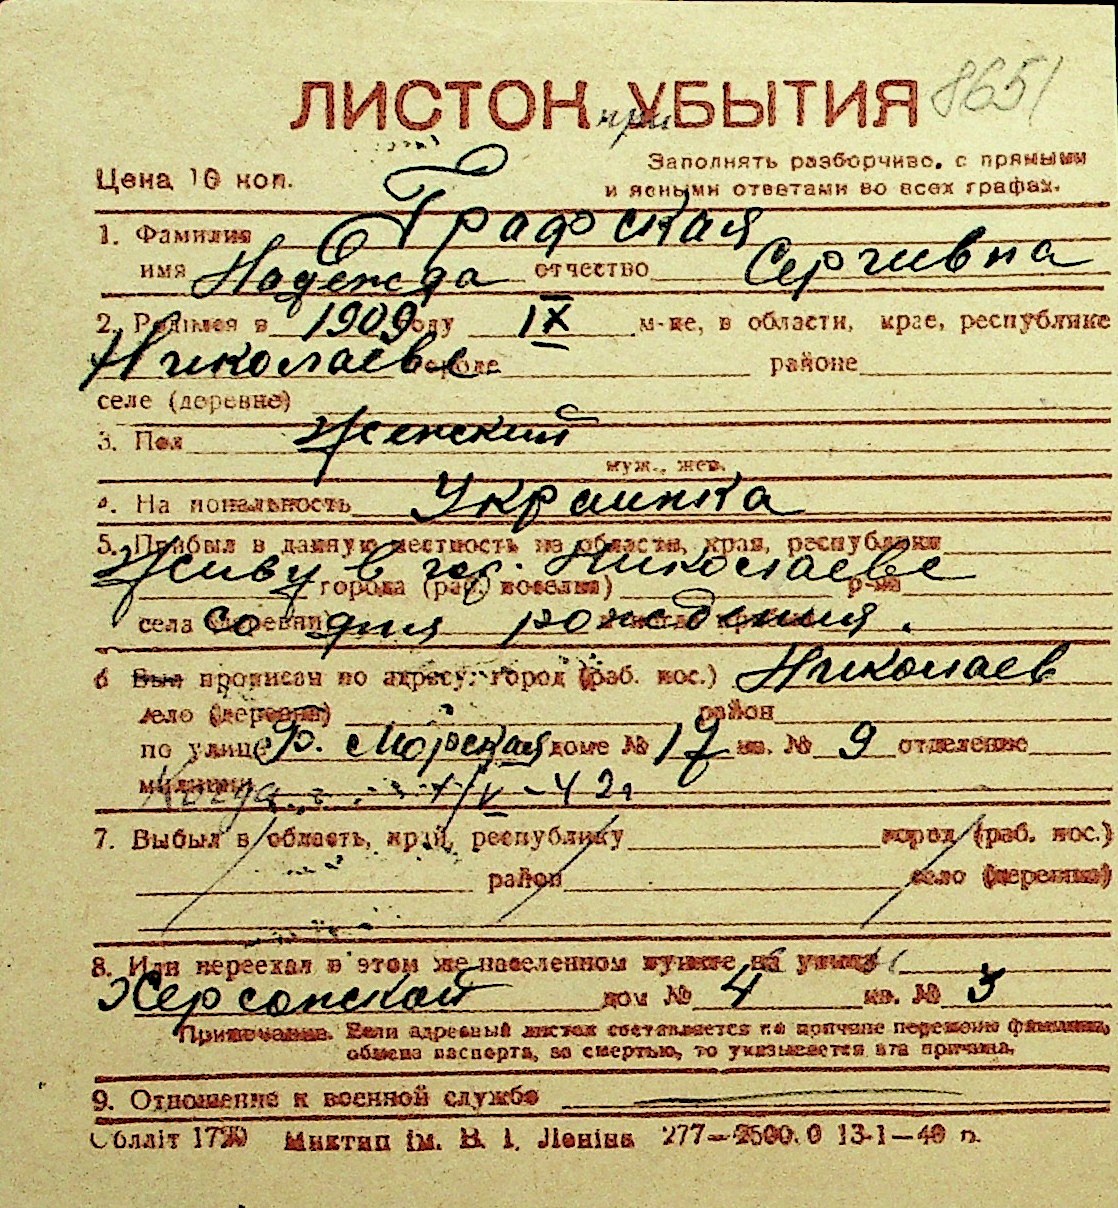 8651
ЛИСТОН при УБЫТИЯ
Цена 10 коп.
Заполнять разборчиво, с прямыми
и ясными ответами во всех графах.
1. Фамилия Графская
имя Надежда отчество Сергивна
2. Родился в 1909 году IX м-це, в области, крае, республике
Николаеве городе районе
селе (деревне)
3. Пол Женский
муж., жен.
4. Национальность Украинка
5. Прибыл в данную местность из области, края, республики
Живу в гор. Николаеве
города (раб. поселка) р-на
села (деревни) со дня рождения.
6 Был прописан по адресу: город (раб. пос.) Николаев
село (деревня) район
по улице Р. Морская доме № 17 кв. № 9 отделение
милиции Когда /V-42г
7. Выбыл в область, край, республику город (раб. пос.)
район село (деревня)
8. Или переехал в этом же населенном пункте на улицу
Херсонской дом № 4 кв. № 3
Примечание. Если адресный листок составляется по причине перемены фамилии,
обмена паспорта, за смертью, то указывается эта причина.
9. Отношение к военной службе
Облліт 1790 Миктип ім. В. І. Леніна 277—2500.0 13-1—40 р.